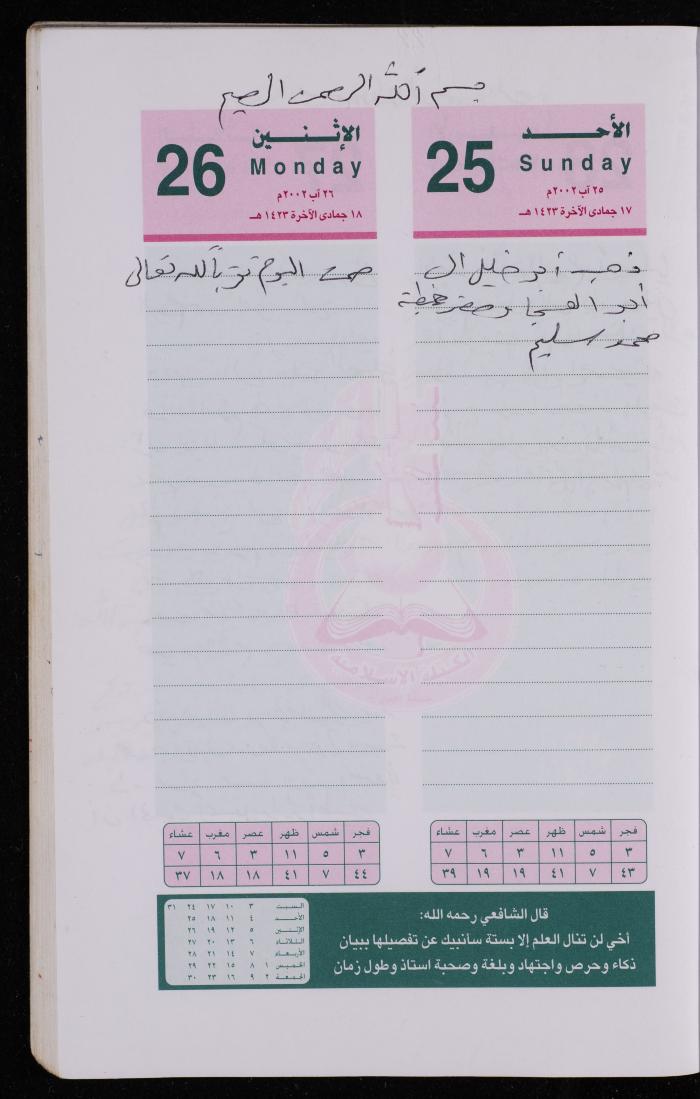 بسم الله الرحمن الرحيم
الأحد
25
Sunday
٢٥ آب ٢٠٠٢م
١٧ جمادى الآخرة ١٤٢٣ هـ
ذهب أبو خليل ال
أبو الهيجا وحضر خطبة
محمد سليم
الإثنين
26
Monday
٢٦ آب ٢٠٠٢م
١٨ جمادى الآخرة ١٤٢٣ هـ
صمت اليوم تقرباً لله تعالى
الكتلة الاسلامية
فجر شمس ظهر عصر مغرب عشاء
٣ ٥ ١١ ٣ ٦ ٧
٤٣ ٧ ٤١ ١٩ ١٩ ٣٩
فجر شمس ظهر عصر مغرب عشاء
٣ ٥ ١١ ٣ ٦ ٧
٤٤ ٧ ٤١ ١٨ ١٨ ٣٧
قال الشافعي رحمه الله:
أخي لن تنال العلم إلا بستة سأنبيك عن تفصيلها ببيان
ذكاء وحرص واجتهاد وبلغة وصحبة استاذ وطول زمان
السبت ٣ ١٠ ١٧ ٢٤ ٣١
الأحد ٤ ١١ ١٨ ٢٥
الإثنين ٥ ١٢ ١٩ ٢٦
الثلاثاء ٦ ١٣ ٢٠ ٢٧
الأربعاء ٧ ١٤ ٢١ ٢٨
الخميس ١ ٨ ١٥ ٢٢ ٢٩
الجمعة ٢ ٩ ١٦ ٢٣ ٣٠